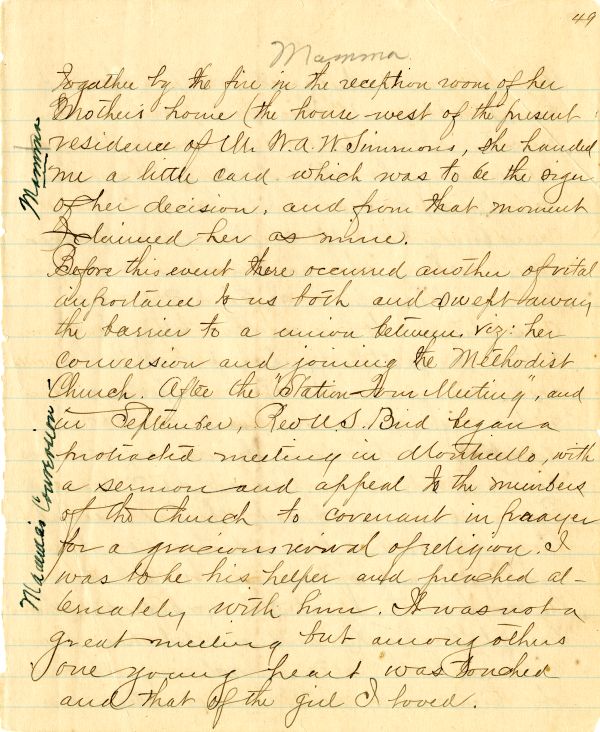 49
Mamma
together by the fire in the reception room of her
Mother's home (the house west of the present
residence of Mr W.A.W Simmons, she handed
me a little card which was to be the sign
of her decision, and from that moment
I claimed her as mine.
Before this event there occurred another of vital
importance to us both and swept away
the barrier to a union between, viz: her
conversion and joining the Methodist
Church. After the "Station Meeting", and
in September, Rev U.S. Bird began a
protracted meeting in Monticello, with
a sermon and appeal to the members
of the Church to covenant in prayer
for a gracious revival of religion. I
was to be his helper and preached al-
ternately with him. It was not a
great meeting but among others
one young heart was touched
and that of the girl I loved.
Mamma
Mamma's Conversion